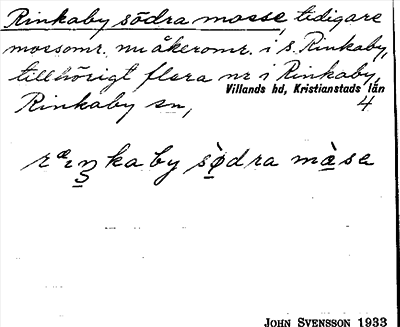 Rinkaby södra mosse, tidigare
mossomr. nu åkeromr. i s. Rinkaby,
tillhörigt flera nr i Rinkaby,
Villands hd, Kristianstads län
Rinkaby sn, 4
ræıŋkaby sø̀dra màsa
JOHN SVENSSON 1933